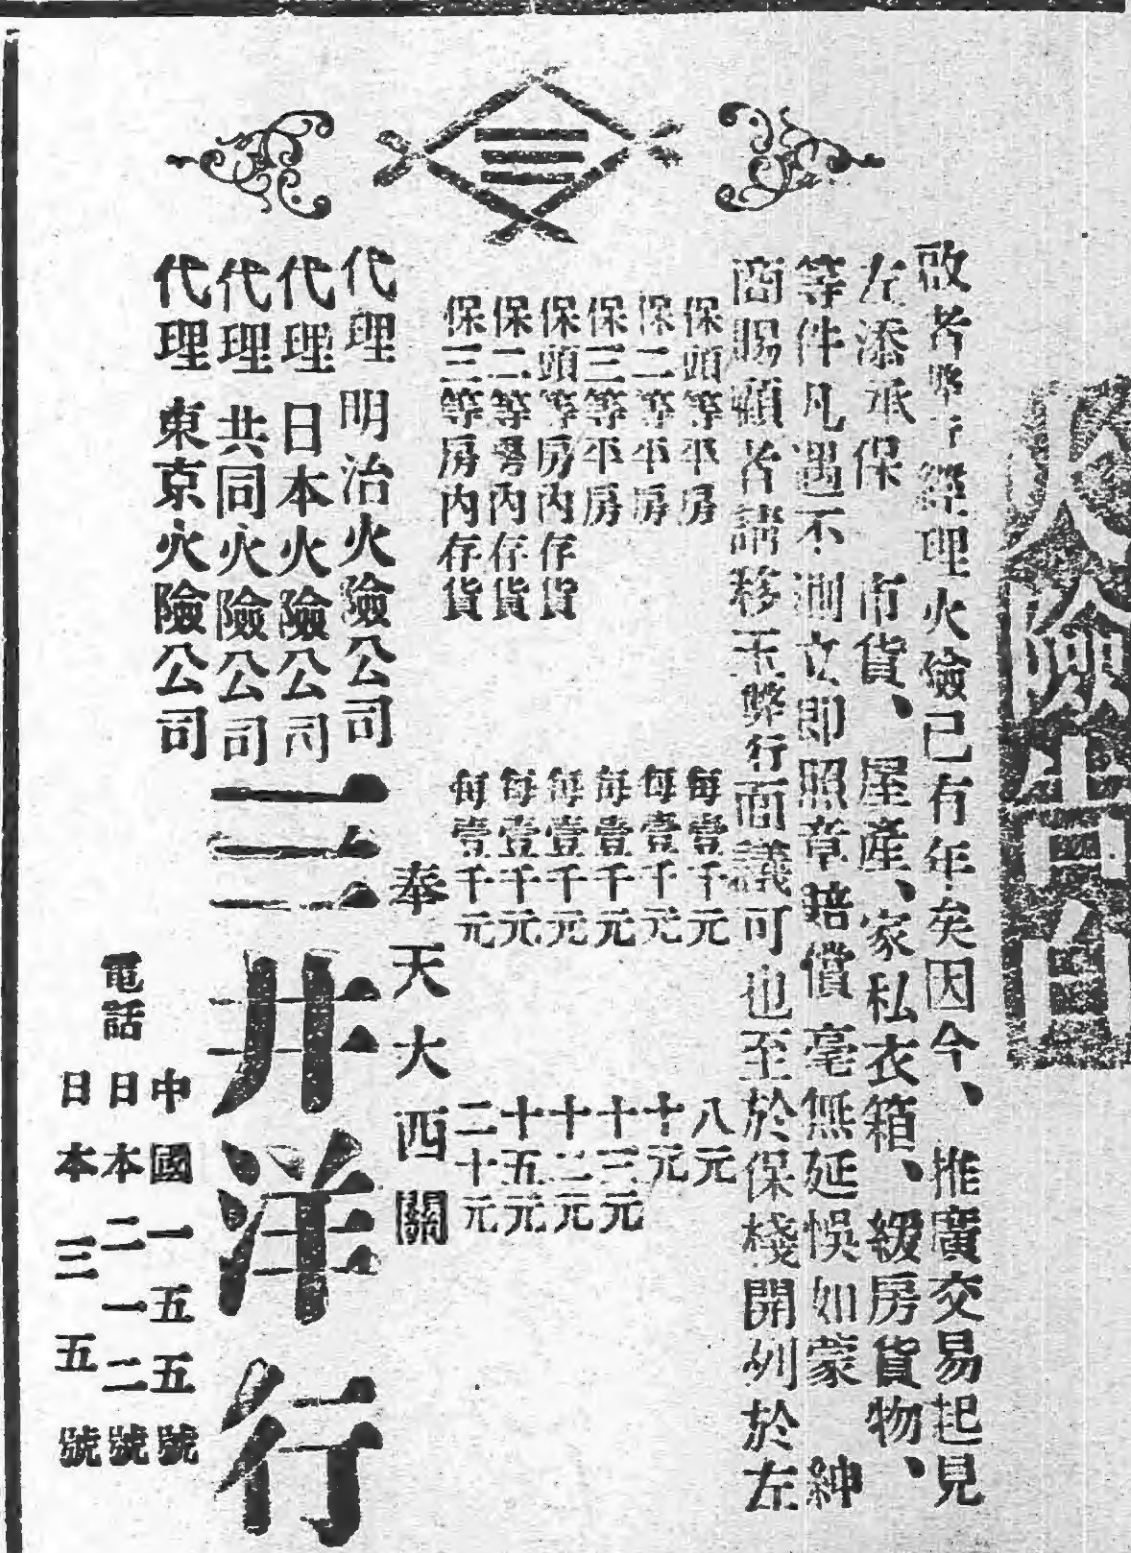 火險告白
啟者弊行經理火險已有年矣因今、推廣交易起見
左添承保 市貨、屋產、家私衣箱、緞房貨物、
等件凡遇不測立即照章賠償毫無延悞如蒙 紳
商賜顧者請移玉弊行面議可也至於保棧開列於左
保頭等平房 每壹千元 八元
保二等平房 每壹千元 十元
保三等平房 每壹千元 十三元
保頭等房內存貨 每壹千元 十二元
保二等房內存貨 每壹千元 十五元
保三等房內存貨 每壹千元 二十元
奉天大西關
代理 明治火險公司
代理 日本火險公司
代理 共同火險公司
代理 東京火險公司
三井洋行
電話
中國 一五五號
日本 二一二號
日本 三五號